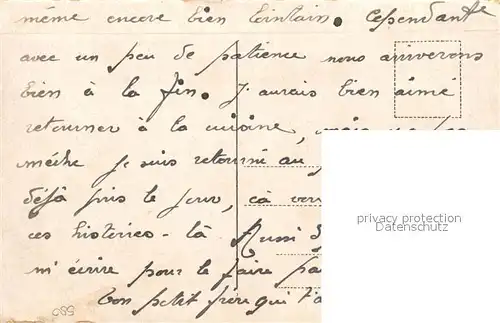 même encore bien lointain. Cependant
avec un peu de patience nous arriverons
bien à la fin. J'aurais bien aimé
retourner à la cuisine,
mèche je suis retourné au
déjà pris le jour, çà
ces histoires-là. Aussi
m'écrire pour le faire
ton petit frère qui t'a
privacy protection
Datenschutz
580